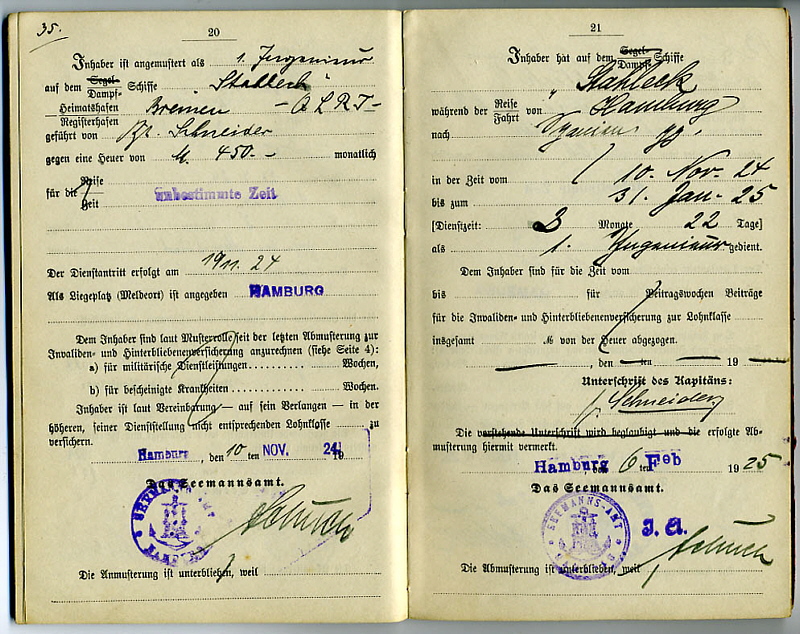 35.
20
Inhaber ist angemustert als 1. Ingenieur
auf dem Segel-
Dampf- Schiffe "Stahleck"
Heimatshafen
Registerhafen Bremen - Q L R T -
geführt von Kpt. Schneider
gegen eine Heuer von M. 450.- monatlich
für die Reise
Zeit unbestimmte Zeit
Der Dienstantritt erfolgt am 19 11. 24
Als Liegeplatz (Meldeort) ist angegeben HAMBURG
Dem Inhaber sind laut Musterrolle seit der letzten Abmusterung zur
Invaliden- und Hinterbliebenenversicherung anzurechnen (siehe Seite 4):
a) für militärische Dienstleistungen . . . . . . . . . . Wochen,
b) für bescheinigte Krankheiten . . . . . . . . . . Wochen.
Inhaber ist laut Vereinbarung — auf sein Verlangen — in der
höheren, seiner Dienststellung nicht entsprechenden Lohnklasse zu
versichern.
Hamburg, den 10 ten NOV. 19 24
Das Seemannsamt.
SEEMANNS-AMT
Die Anmusterung ist unterblieben, weil
21
Inhaber hat auf dem Segel-
Dampf- Schiffe
"Stahleck
während der Reise
Fahrt von Hamburg
nach Spanien
in der Zeit vom 10. Nov. 24
bis zum 31. Jan. 25
[Dienstzeit: 2 Monate 22 Tage]
als 1. Ingenieur gedient.
Dem Inhaber sind für die Zeit vom
bis für Beitragswochen Beiträge
für die Invaliden- und Hinterbliebenenversicherung zur Lohnklasse
insgesamt M von der Heuer abgezogen.
, den ten 19
Unterschrift des Kapitäns:
Schneider
Die vorstehende Unterschrift wird beglaubigt und die erfolgte Ab-
musterung hiermit vermerkt.
Hamburg, den 6 ten Feb 1925
Das Seemannsamt.
SEEMANNS-AMT
J. A.
Die Abmusterung ist unterblieben, weil